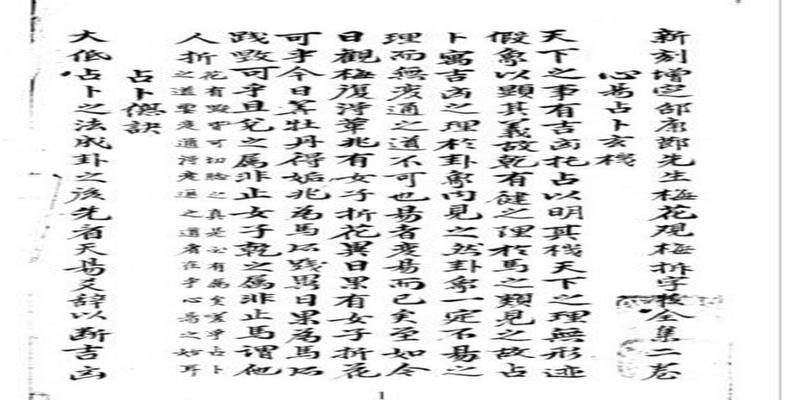 新刻增定邵康節先生梅花观梅拆字数全集二卷
心易占卜玄機
天下之事有吉凶托占以明其機天下之理無形迹
假象以顯其義故乾有健之理於馬之類見之故占
卜寓吉凶之理於卦象内見之然卦象一定不易之
理而無变通之道不可也易者变易而已矣至如今
日觀梅復得革兆有女子折花異日果有女子折花
可乎今日算牡丹得姤兆為馬所踐異日果為馬所
踐毁可乎且兑之属非止女子乾之属非止馬谓他
人折花有毁皆可切验之真是必有属矣嗟乎占卜
之道要变通得变通之道者在乎心易之妙耳
占卜總訣
大低占卜之法成卦之後先看天易爻辞以断吉凶
1